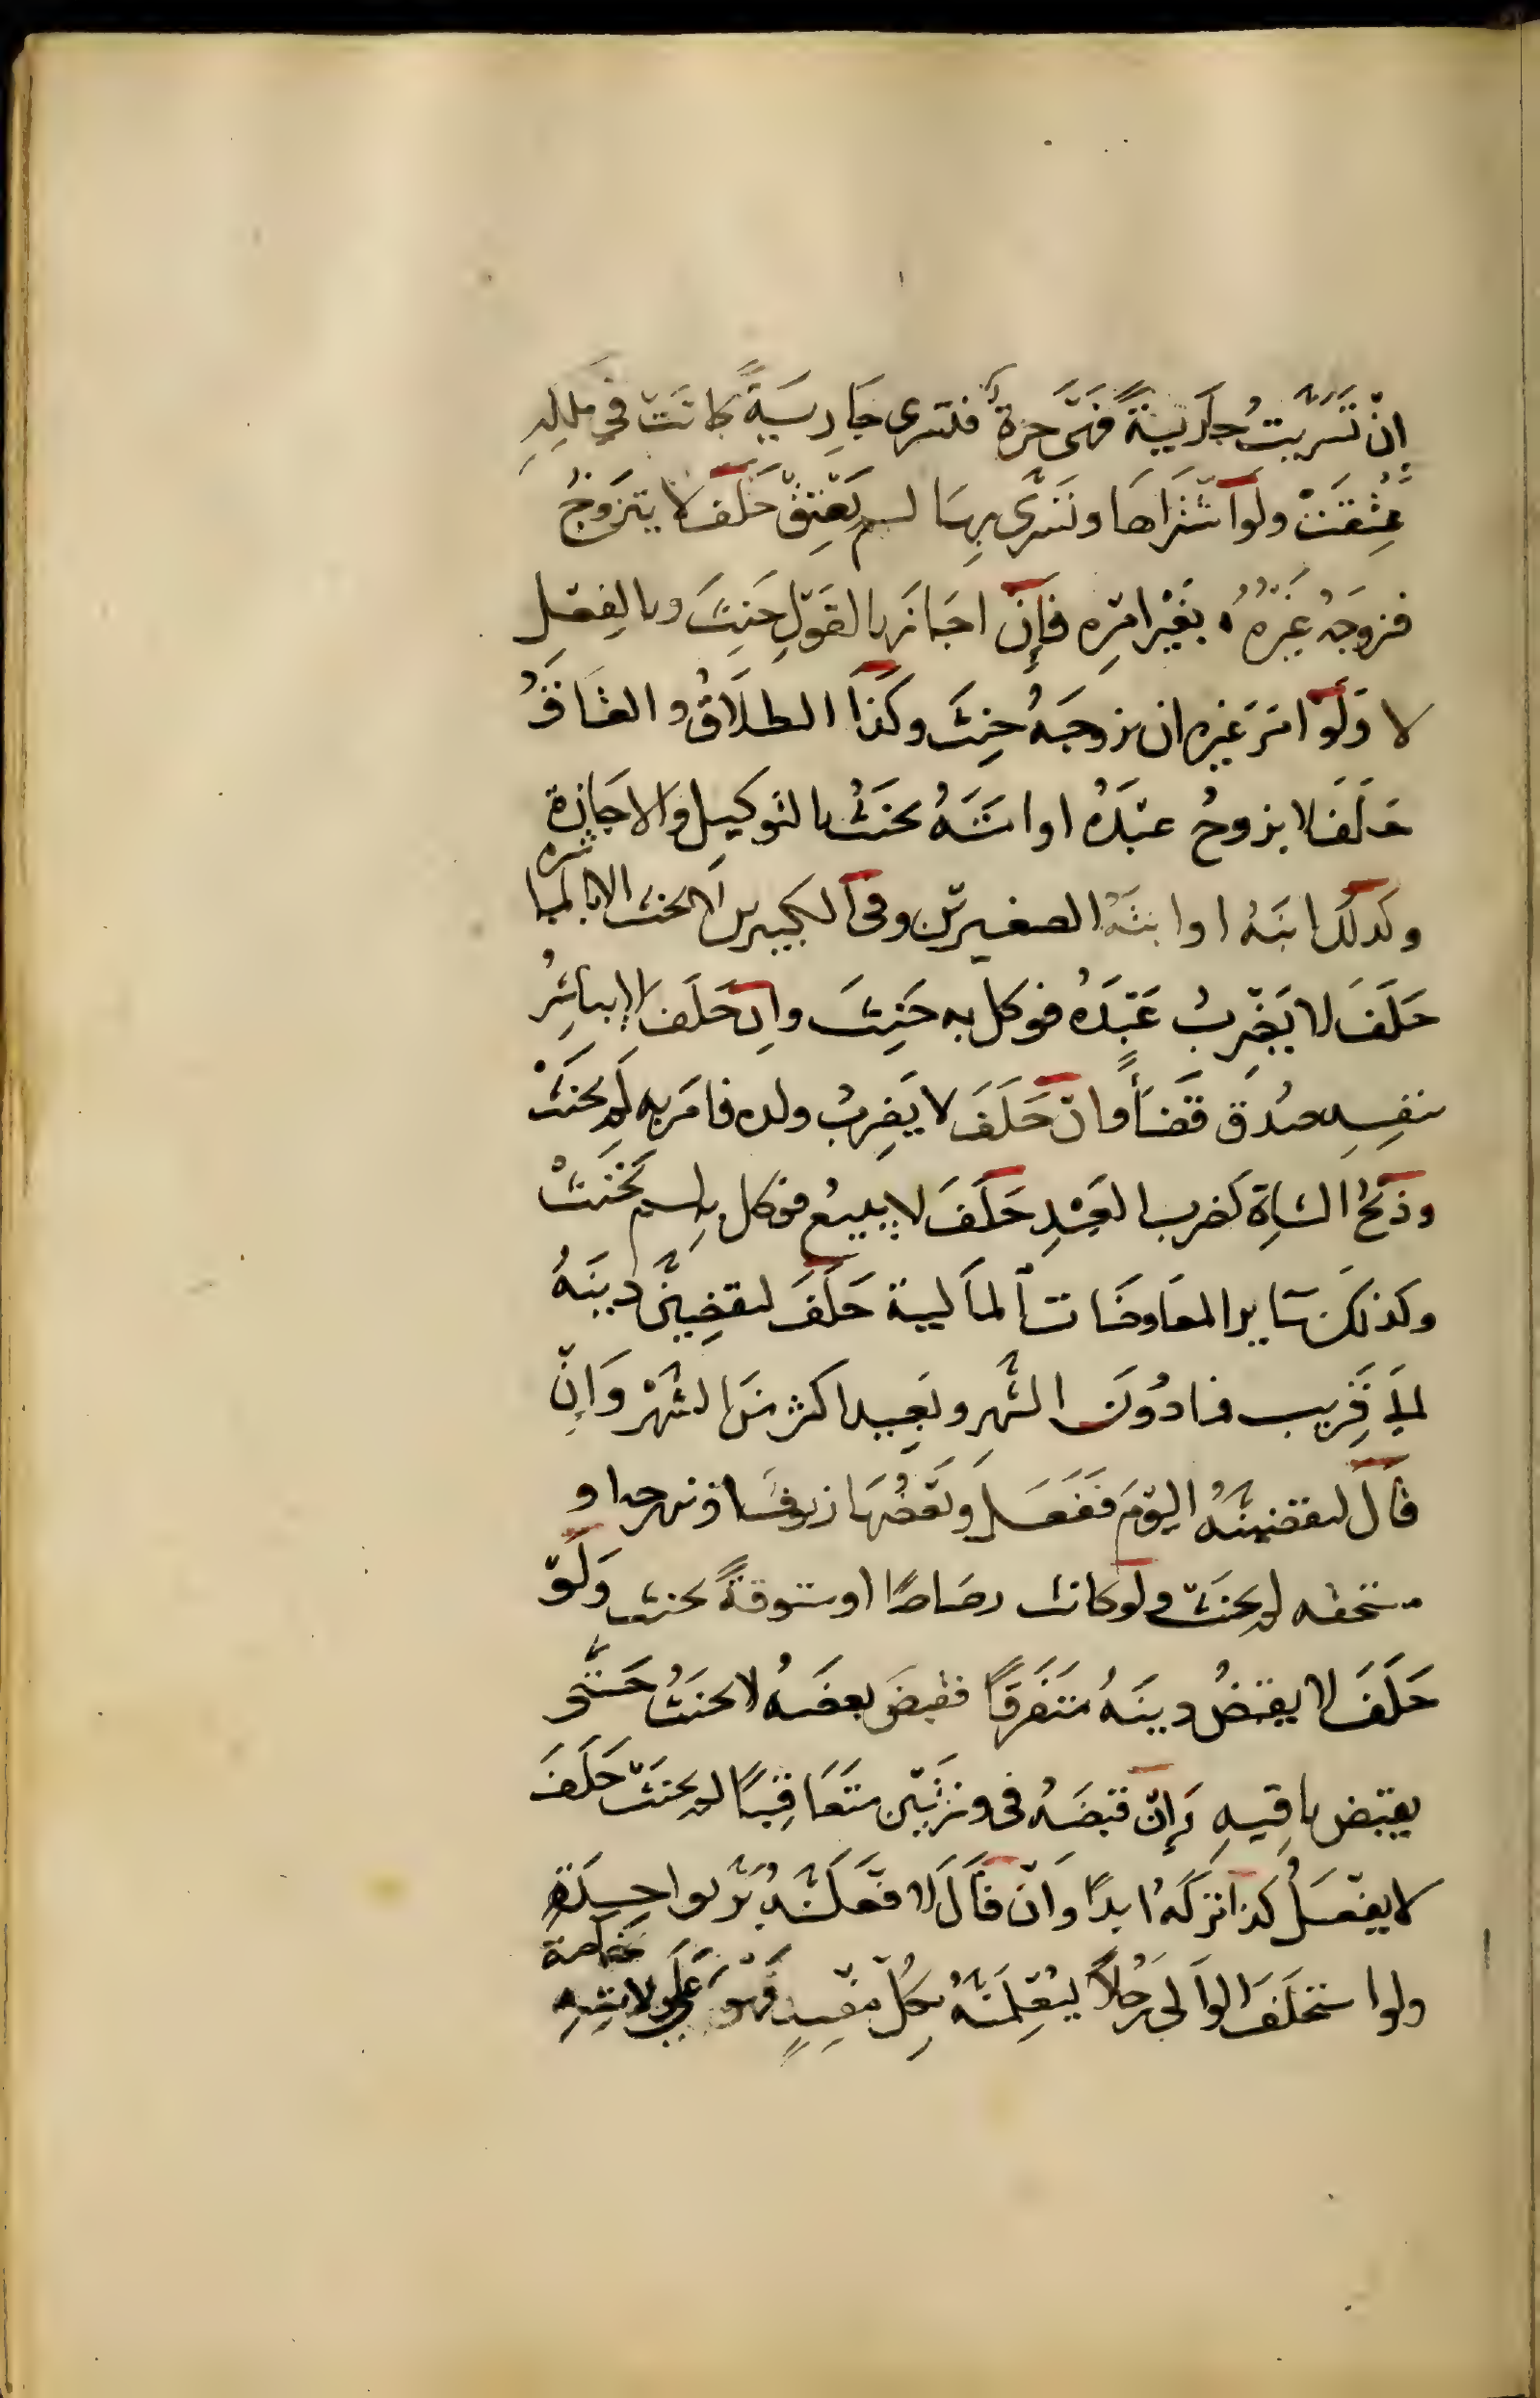 إنْ تَسَرَّيتُ جاريةً فهىَ حرة فتسرى جاريةً كانَتْ في ملكه
عُتِقَتْ ولو اشتراها وتسرَّى بها لم تَعْتِقْ حَلَفَ لا يتزوجُ
فزوجَهُ غيرُهُ بغَيْر امرِه فإنْ اجازَ بالقَوْلِ حَنِثَ وبالفِعْلِ
لا ولَوْ امرَ غيره ان يزوجَهُ حنِثَ وكذا الطلاقُ والعتاقُ
حَلَفَ لا يزوجُ عبْدَهُ او امتَهُ يحنَثُ بالتوكيل والاجازة
وكذلك ابنَهُ او ابنتَهُ الصغيرين وفى الكبيرين لا يحنث الا بالمباشرة
حَلَفَ لا يَضْرِبُ عَبْدَهُ فوكل به حَنِثَ وان حَلَفَ لا يباشِرُ
بنفسِه صُدق قضَاءً وان حَلَفَ لا يَضرِبُ ولده فامر به لم يحنَثْ
وذبحُ الشاةِ كضرب العَبْدِ حَلَفَ لا يبيعُ فوكل به لم يَحْنَثْ
وكذلك سَاير المعَاوضَات المالية حَلَفَ ليقضِينَّ دينَهُ
الى قَرِيب فما دُونَ الشَّهرِ وبَعِيد اكثر منَ الشَّهْر وَانْ
قالَ ليقضينَّهُ اليَوْمَ ففَعَلَ وبَعْضُهَا زيوفٌ او نبهرجه او
مستحقه لم يحنَثْ ولو كانت رصَاصًا او ستوقةً يحنث ولَوْ
حَلَفَ لا يقبضُ دينَهُ متفَرقًا فقبضَ بعضَهُ لا يحنَثُ حَتَّى
يقبض باقيهِ وَإنْ قبَضَهُ فى وزنَيْن متعَاقِبًا لم يحنَثْ حَلَفَ
لا يفعَلُ كذا تركَهُ ابدًا وَانْ قالَ لافعَلَنَّهُ بَرَّ بواحِدَةٍ
ولو استحلَفَ الوالى رجُلاً ليُعْلِمَنَّهُ بِكُلِّ مفْسِدٍ فَهُوَ عَلَى ولايتِهِ خاصة